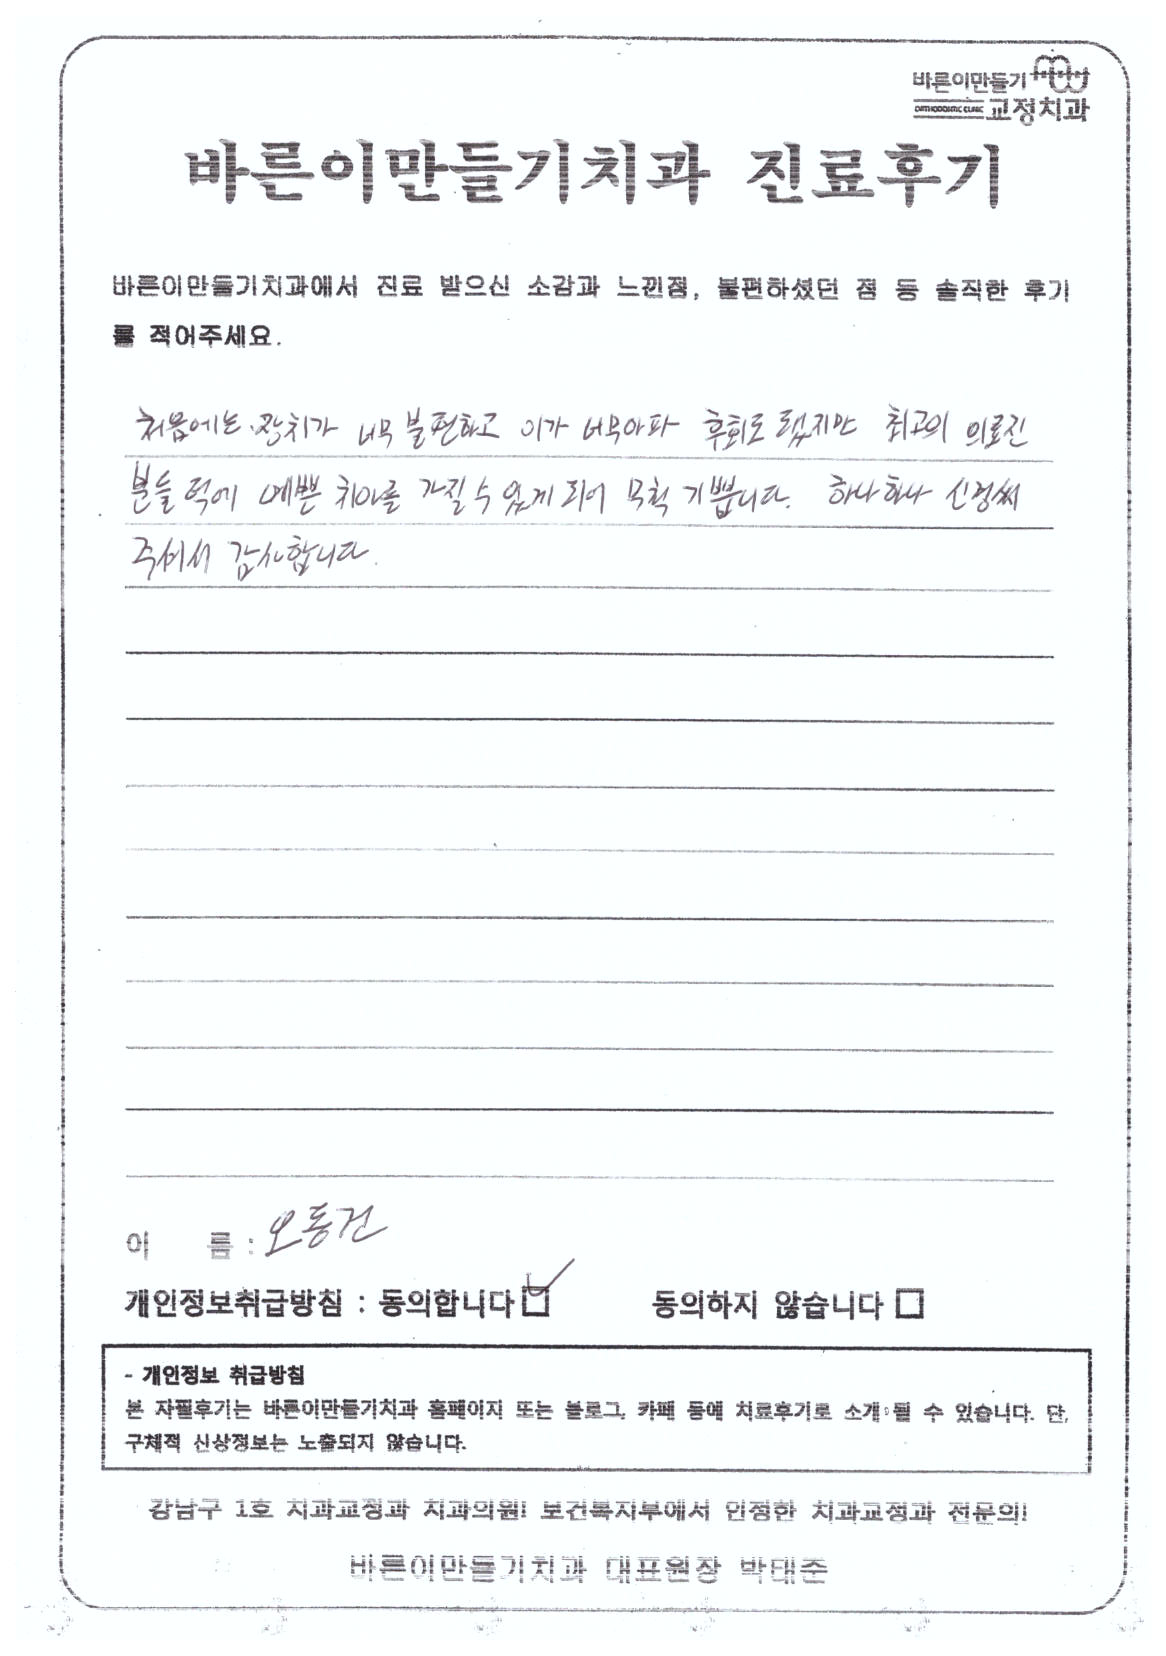 바른이만들기
ORTHODONTIC CLINIC 교정치과
바른이만들기치과 진료후기
바른이만들기치과에서 진료 받으신 소감과 느낀점, 불편하셨던 점 등 솔직한 후기
를 적어주세요.
처음에는 장치가 너무 불편하고 이가 너무아파 후회도 됐지만 최고의 의료진
분들 덕에 예쁜 치아를 가질 수 있게 되어 무척 기쁩니다. 하나하나 신경써
주셔서 감사합니다.
이 름 : 오동건
개인정보취급방침 : 동의합니다 동의하지 않습니다
- 개인정보 취급방침
본 자필후기는 바른이만들기치과 홈페이지 또는 블로그, 카페 등에 치료후기로 소개될 수 있습니다. 단,
구체적 신상정보는 노출되지 않습니다.
강남구 1호 치과교정과 치과의원! 보건복지부에서 인정한 치과교정과 전문의!
바른이만들기치과 대표원장 박태준